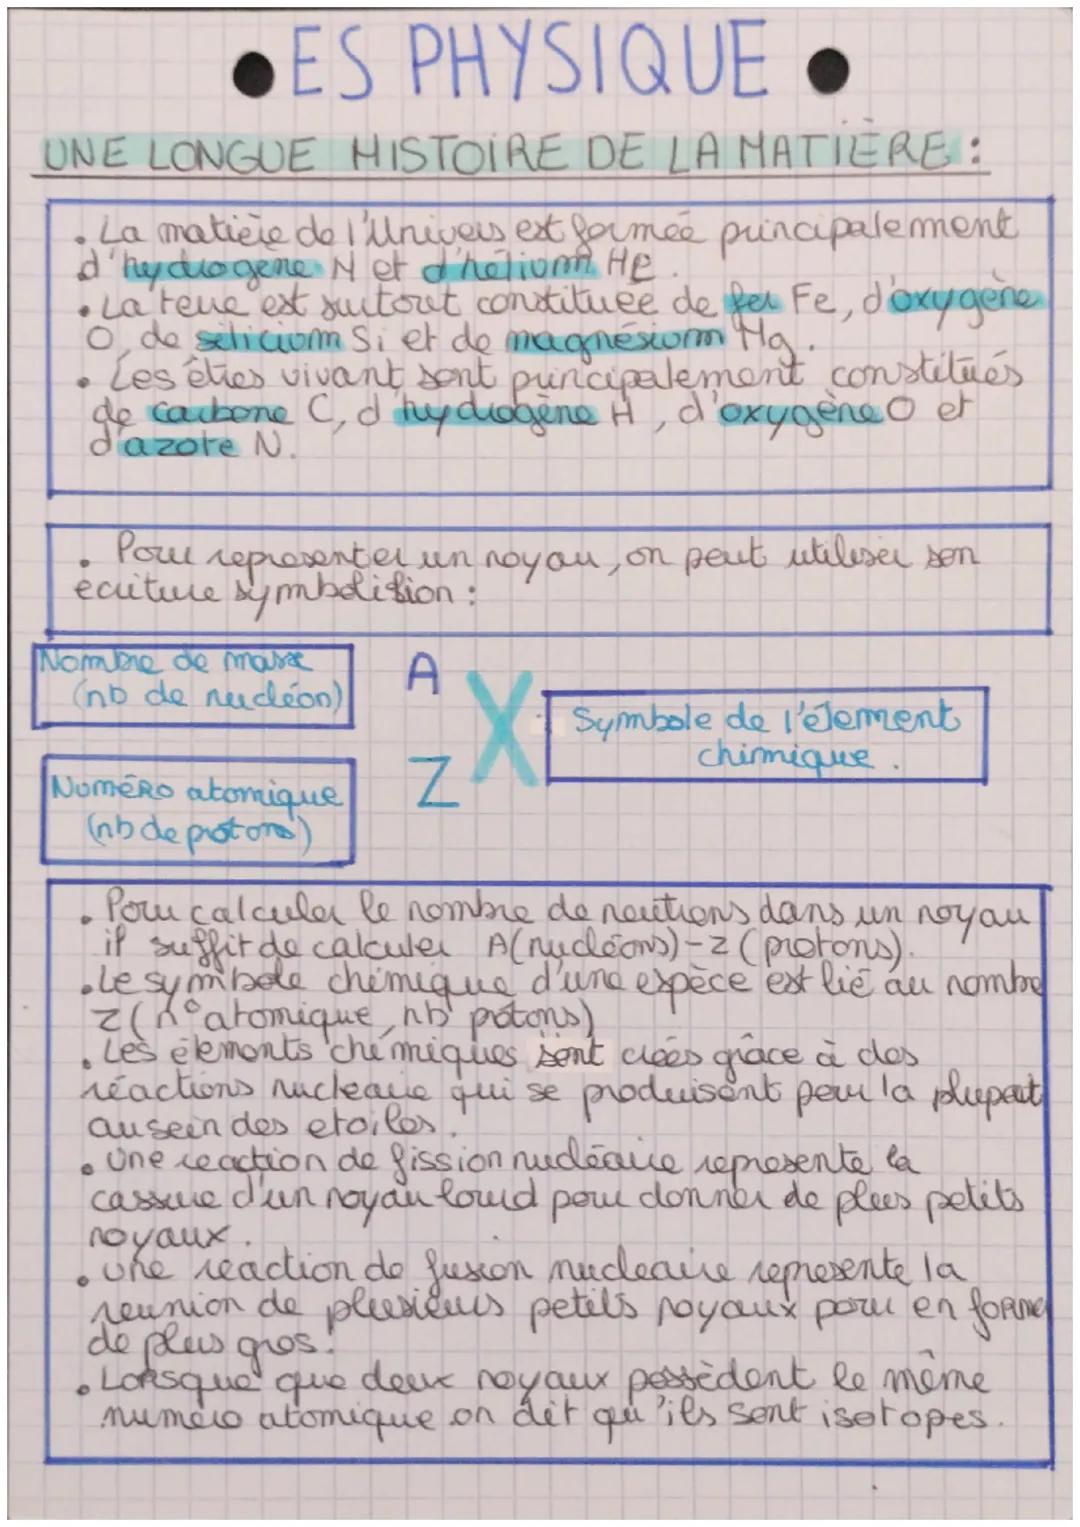 ES PHYSIQUE
UNE LONGUE HISTOIRE DE LA MATIÈRE :
• La matière de l'Univers est formée principalement
d'hydrogène H et d'hélium He.
• La terre est surtout constituée de fer Fe, d'oxygène
O, de silicium Si et de magnésium Mg.
• Les êtres vivant sont principalement constitués
de carbone C, d'hydrogène H, d'oxygène O et
d'azote N.
• Pour representer un noyau, on peut utiliser son
écriture symbolision :
Nombre de masse
(nb de nucléon)
A
X
Symbole de l'élement
chimique.
Z
Numéro atomique
(nb de protons)
• Pour calculer le nombre de neutrons dans un noyau
il suffit de calculer A(nucléons)-z (protons).
• Le symbole chimique d'une espèce est lié au nombre
z (n° atomique, nb protons)
• Les élements chimiques sont créés grâce à des
réactions nucleaire qui se produisent pour la plupart
au sein des etoiles.
• Une reaction de fission nucléaire represente la
cassure d'un noyau lourd pour donner de plus petits
noyaux.
• Une reaction de fusion nucleaire represente la
reunion de plusieurs petits noyaux pour en former
de plus gros.
• Lorsque que deux noyaux possèdent le même
numéro atomique on dit qu'ils sont isotopes.